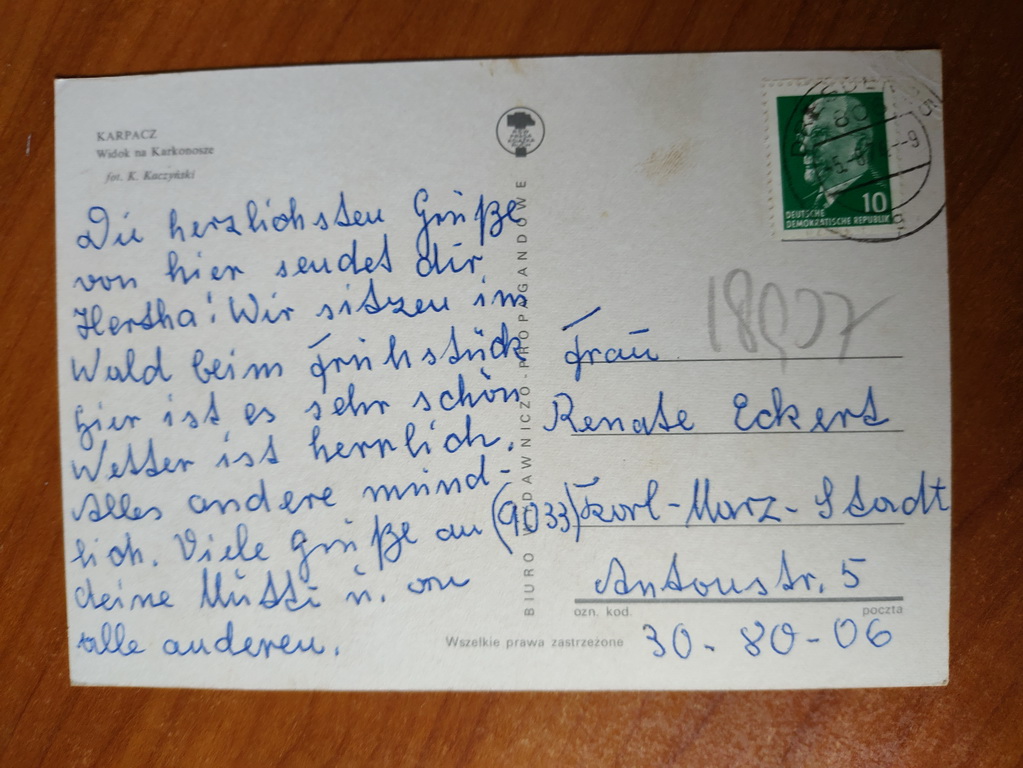 KARPACZ
Widok na Karkonosze
fot. K. Kaczyński
Die herzlichsten Grüße
von hier sendet dir
Hertha! Wir sitzen im
Wald beim Frühstück
hier ist es sehr schön
Wetter ist herrlich.
Alles andere münd-
lich. Viele Grüße an
deine Mutti u. an
alle anderen.
BIURO WYDAWNICZO-PROPAGANDOWE
Wszelkie prawa zastrzeżone
10
DEUTSCHE
DEMOKRATISCHE REPUBLIK
Frau
Renate Eckert
(9033) Karl-Marx-Stadt
Antonstr. 5
ozn. kod.
poczta
30-80-06